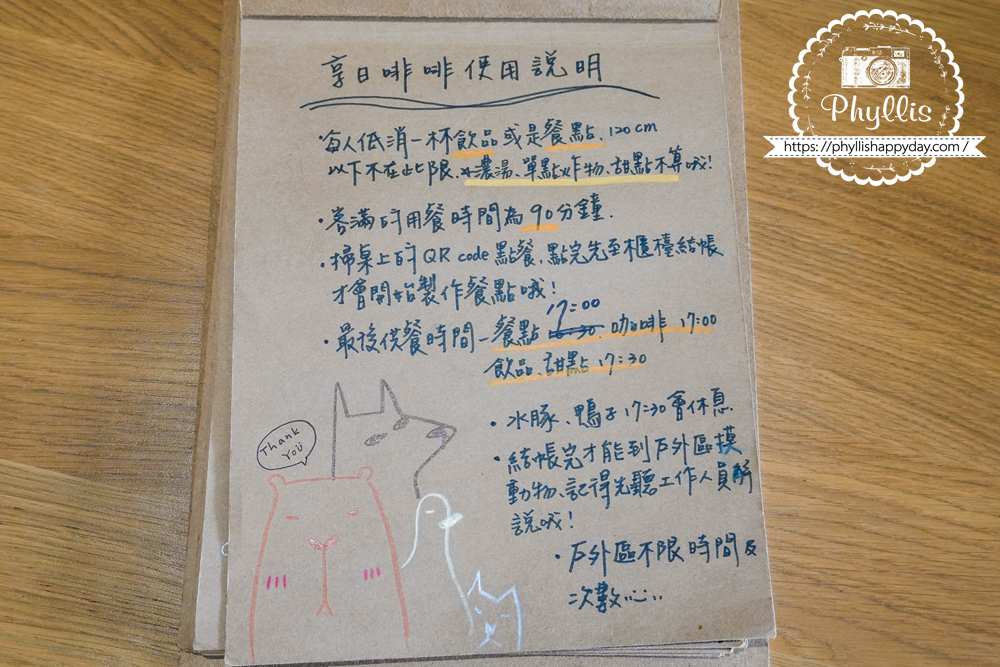 享日啡啡使用說明
·每人低消一杯飲品或是餐點、120cm
以下不在此限、※濃湯、單點炸物、甜點不算哦!
·客滿時用餐時間為90分鐘.
·掃桌上的QR code點餐、點完先至櫃檯結帳
才會開始製作餐點哦!
17:00
·最後供餐時間-餐點 16:30、咖啡 17:00
飲品、甜點 17:30
·水豚、鴨子 17:30會休息
·結帳完才能到戶外區摸
動物、記得先聽工作人員解
說哦!
·戶外區不限時間及
次數
Thank
You
Phyllis
https://phyllishappyday.com /